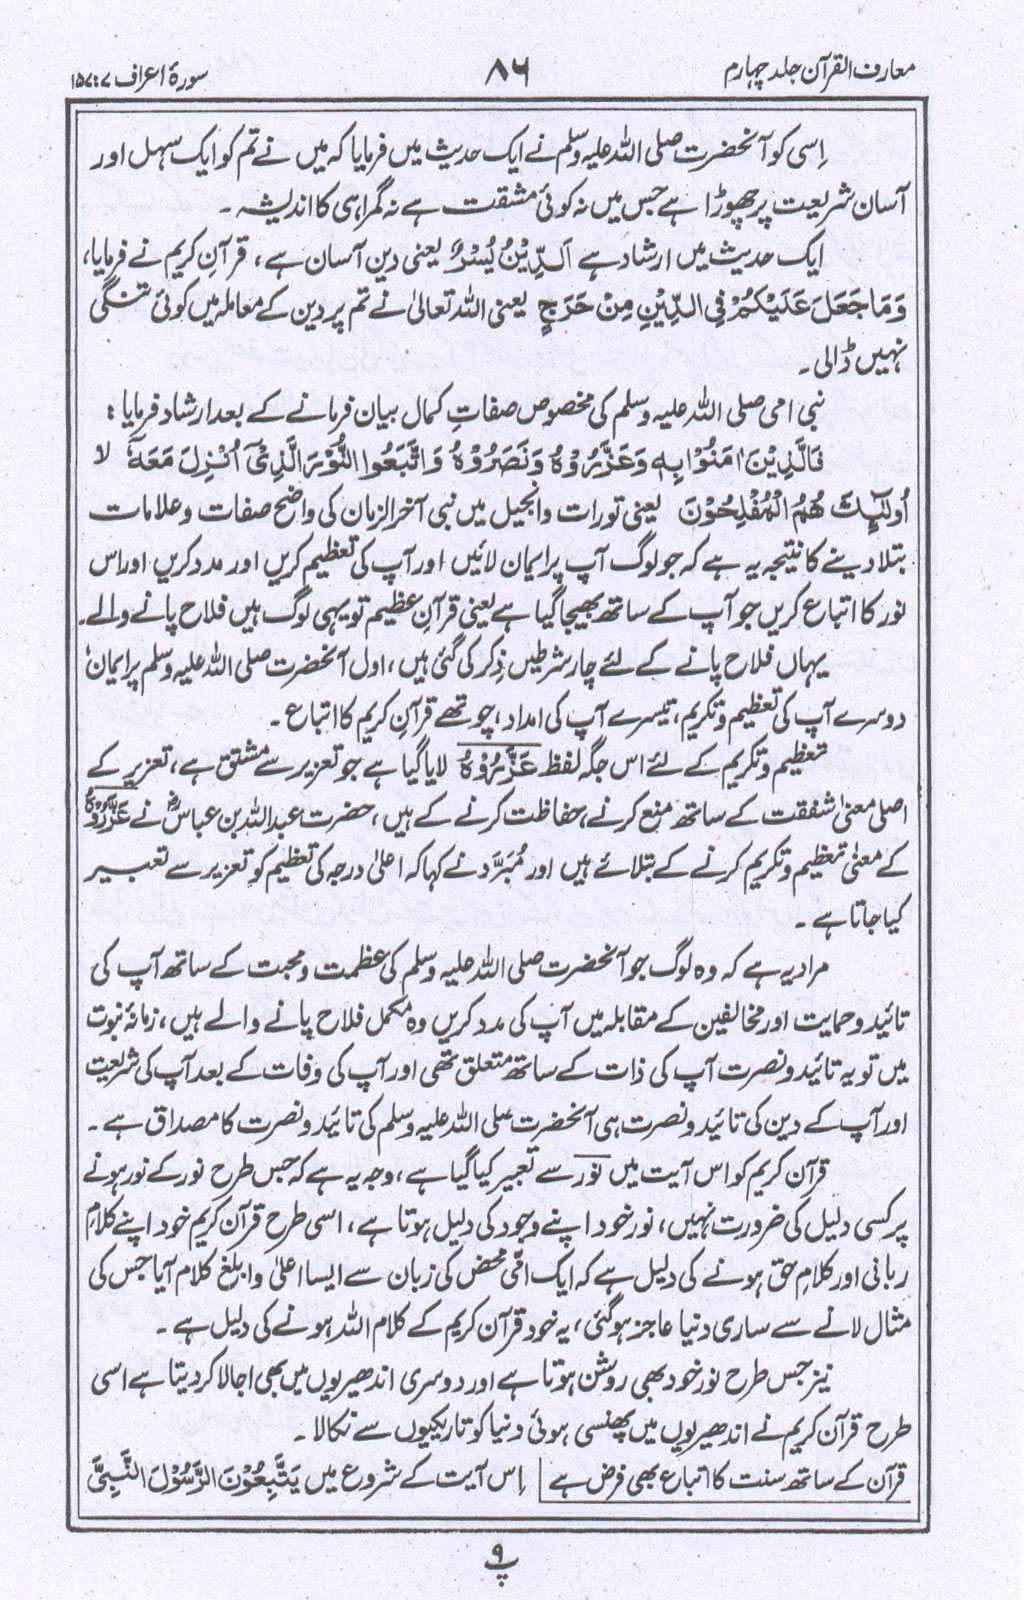 معارف القرآن جلد چہارم
۸۶
سورۂ اعراف ۷ : ۱۵۷
اِسی کو آنحضرت صلی اللہ علیہ وسلم نے ایک حدیث میں فرمایا کہ میں نے تم کو ایک سہل اور
آسان شریعت پر چھوڑا ہے جس میں نہ کوئی مشقت ہے نہ گمراہی کا اندیشہ۔
ایک حدیث میں ارشاد ہے اَلدِّیْنُ یُسْرٌ یعنی دین آسان ہے، قرآنِ کریم نے فرمایا،
وَمَا جَعَلَ عَلَیْکُمْ فِی الدِّیْنِ مِنْ حَرَجٍ یعنی اللہ تعالیٰ نے تم پر دین کے معاملہ میں کوئی تنگی
نہیں ڈالی۔
نبی امی صلی اللہ علیہ وسلم کی مخصوص صفاتِ کمال بیان فرمانے کے بعد ارشاد فرمایا:
فَالَّذِیْنَ اٰمَنُوْا بِہٖ وَعَزَّرُوْہُ وَنَصَرُوْہُ وَاتَّبَعُوا النُّوْرَ الَّذِیْٓ اُنْزِلَ مَعَہٗٓ لا
اُولٰٓئِکَ ھُمُ الْمُفْلِحُوْنَ یعنی تورات وانجیل میں نبی آخر الزمان کی واضح صفات وعلامات
بتلا دینے کا نتیجہ یہ ہے کہ جو لوگ آپ پر ایمان لائیں اور آپ کی تعظیم کریں اور مدد کریں اور اس
نور کا اتباع کریں جو آپ کے ساتھ بھیجا گیا ہے یعنی قرآنِ عظیم تو یہی لوگ ہیں فلاح پانے والے۔
یہاں فلاح پانے کے لئے چار شرطیں ذکر کی گئی ہیں، اول آنحضرت صلی اللہ علیہ وسلم پر ایمان،
دوسرے آپ کی تعظیم وتکریم، تیسرے آپ کی امداد، چوتھے قرآنِ کریم کا اتباع۔
تعظیم وتکریم کے لئے اس جگہ لفظ عَزَّرُوْہُ لایا گیا ہے جو تعزیر سے مشتق ہے، تعزیر کے
اصلی معنیٰ شفقت کے ساتھ منع کرنے، حفاظت کرنے کے ہیں، حضرت عبد اللہ بن عباسؓ نے عَزَّرُوْہُ
کے معنیٰ تعظیم وتکریم کرنے کے بتلائے ہیں اور مُبَرَّد نے کہا کہ اعلیٰ درجہ کی تعظیم کو تعزیر سے تعبیر
کیا جاتا ہے۔
مراد یہ ہے کہ وہ لوگ جو آنحضرت صلی اللہ علیہ وسلم کی عظمت ومحبت کے ساتھ آپ کی
تائید وحمایت اور مخالفین کے مقابلہ میں آپ کی مدد کریں وہ مکمل فلاح پانے والے ہیں، زمانۂ نبوت
میں تو یہ تائید ونصرت آپ کی ذات کے ساتھ متعلق تھی اور آپ کی وفات کے بعد آپ کی شریعت
اور آپ کے دین کی تائید ونصرت ہی آنحضرت صلی اللہ علیہ وسلم کی تائید ونصرت کا مصداق ہے۔
قرآن کریم کو اس آیت میں نور سے تعبیر کیا گیا ہے، وجہ یہ ہے کہ جس طرح نور کے نور ہونے
پر کسی دلیل کی ضرورت نہیں، نور خود اپنے وجود کی دلیل ہوتا ہے، اسی طرح قرآن کریم خود اپنے کلامِ
ربانی اور کلامِ حق ہونے کی دلیل ہے کہ ایک اُمّی محض کی زبان سے ایسا اعلیٰ وابلغ کلام آیا جس کی
مثال لانے سے ساری دنیا عاجز ہوگئی، یہ خود قرآن کریم کے کلام اللہ ہونے کی دلیل ہے۔
نیز جس طرح نور خود بھی روشن ہوتا ہے اور دوسری اندھیریوں میں بھی اجالا کر دیتا ہے اسی
طرح قرآن کریم نے اندھیریوں میں پھنسی ہوئی دنیا کو تاریکیوں سے نکالا۔
قرآن کے ساتھ سنت کا اتباع بھی فرض ہے | اِس آیت کے شروع میں یَتَّبِعُوْنَ الرَّسُوْلَ النَّبِیَّ
پ ۹